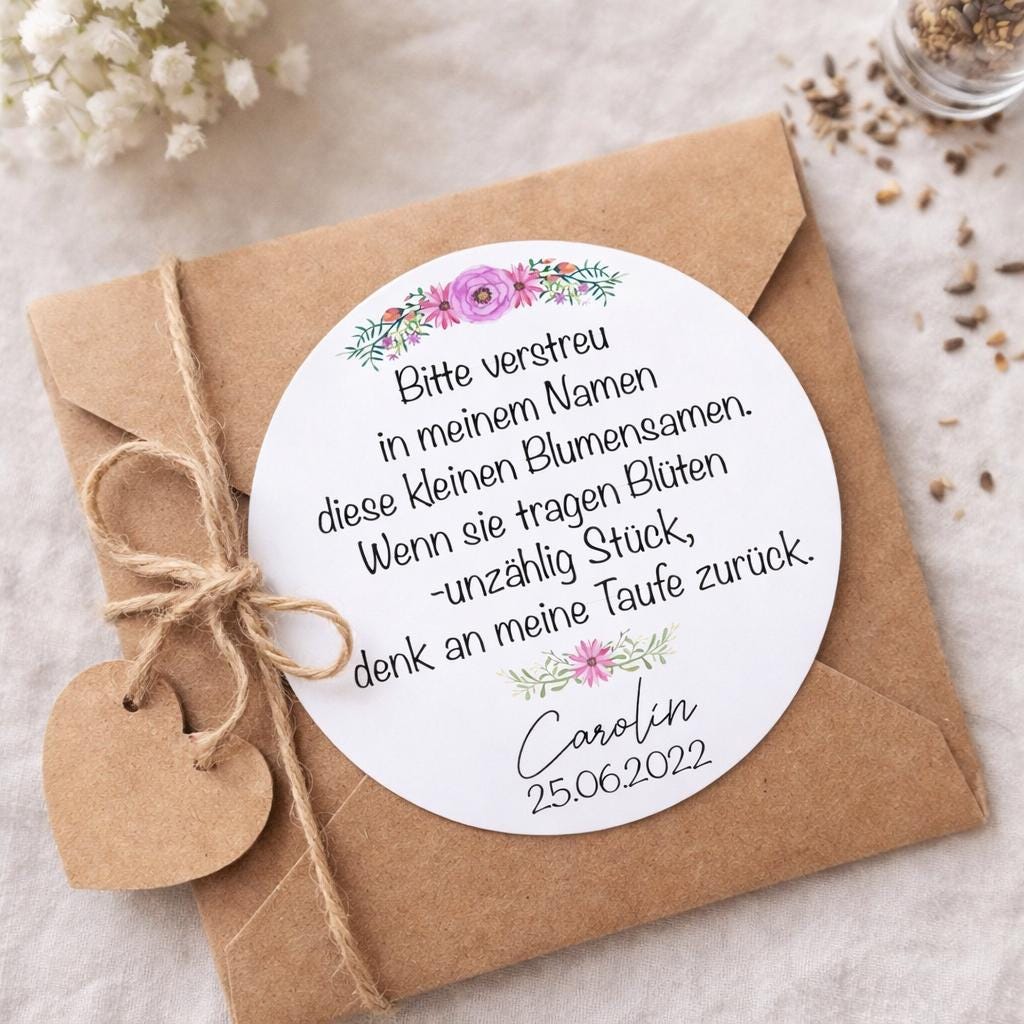 Bitte verstreu
in meinem Namen
diese kleinen Blumensamen.
Wenn sie tragen Blüten
-unzählig Stück,
denk an meine Taufe zurück.
Carolin
25.06.2022